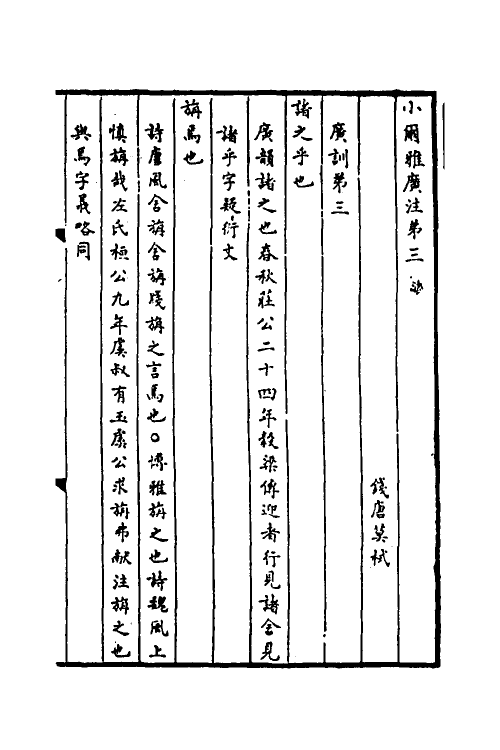 小爾雅廣注第三
錢唐莫栻
廣訓第三
諸之乎也
廣韻諸之也春秋莊公二十四年穀梁傳迎者行見諸舍見
諸乎字疑衍文
旃焉也
詩唐風舍旃舍旃戔旃之言焉也○博雅旃之也詩魏風上
慎旃哉左氏桓公九年虞叔有玉虞公求旃弗献注旃之也
與焉字義略同